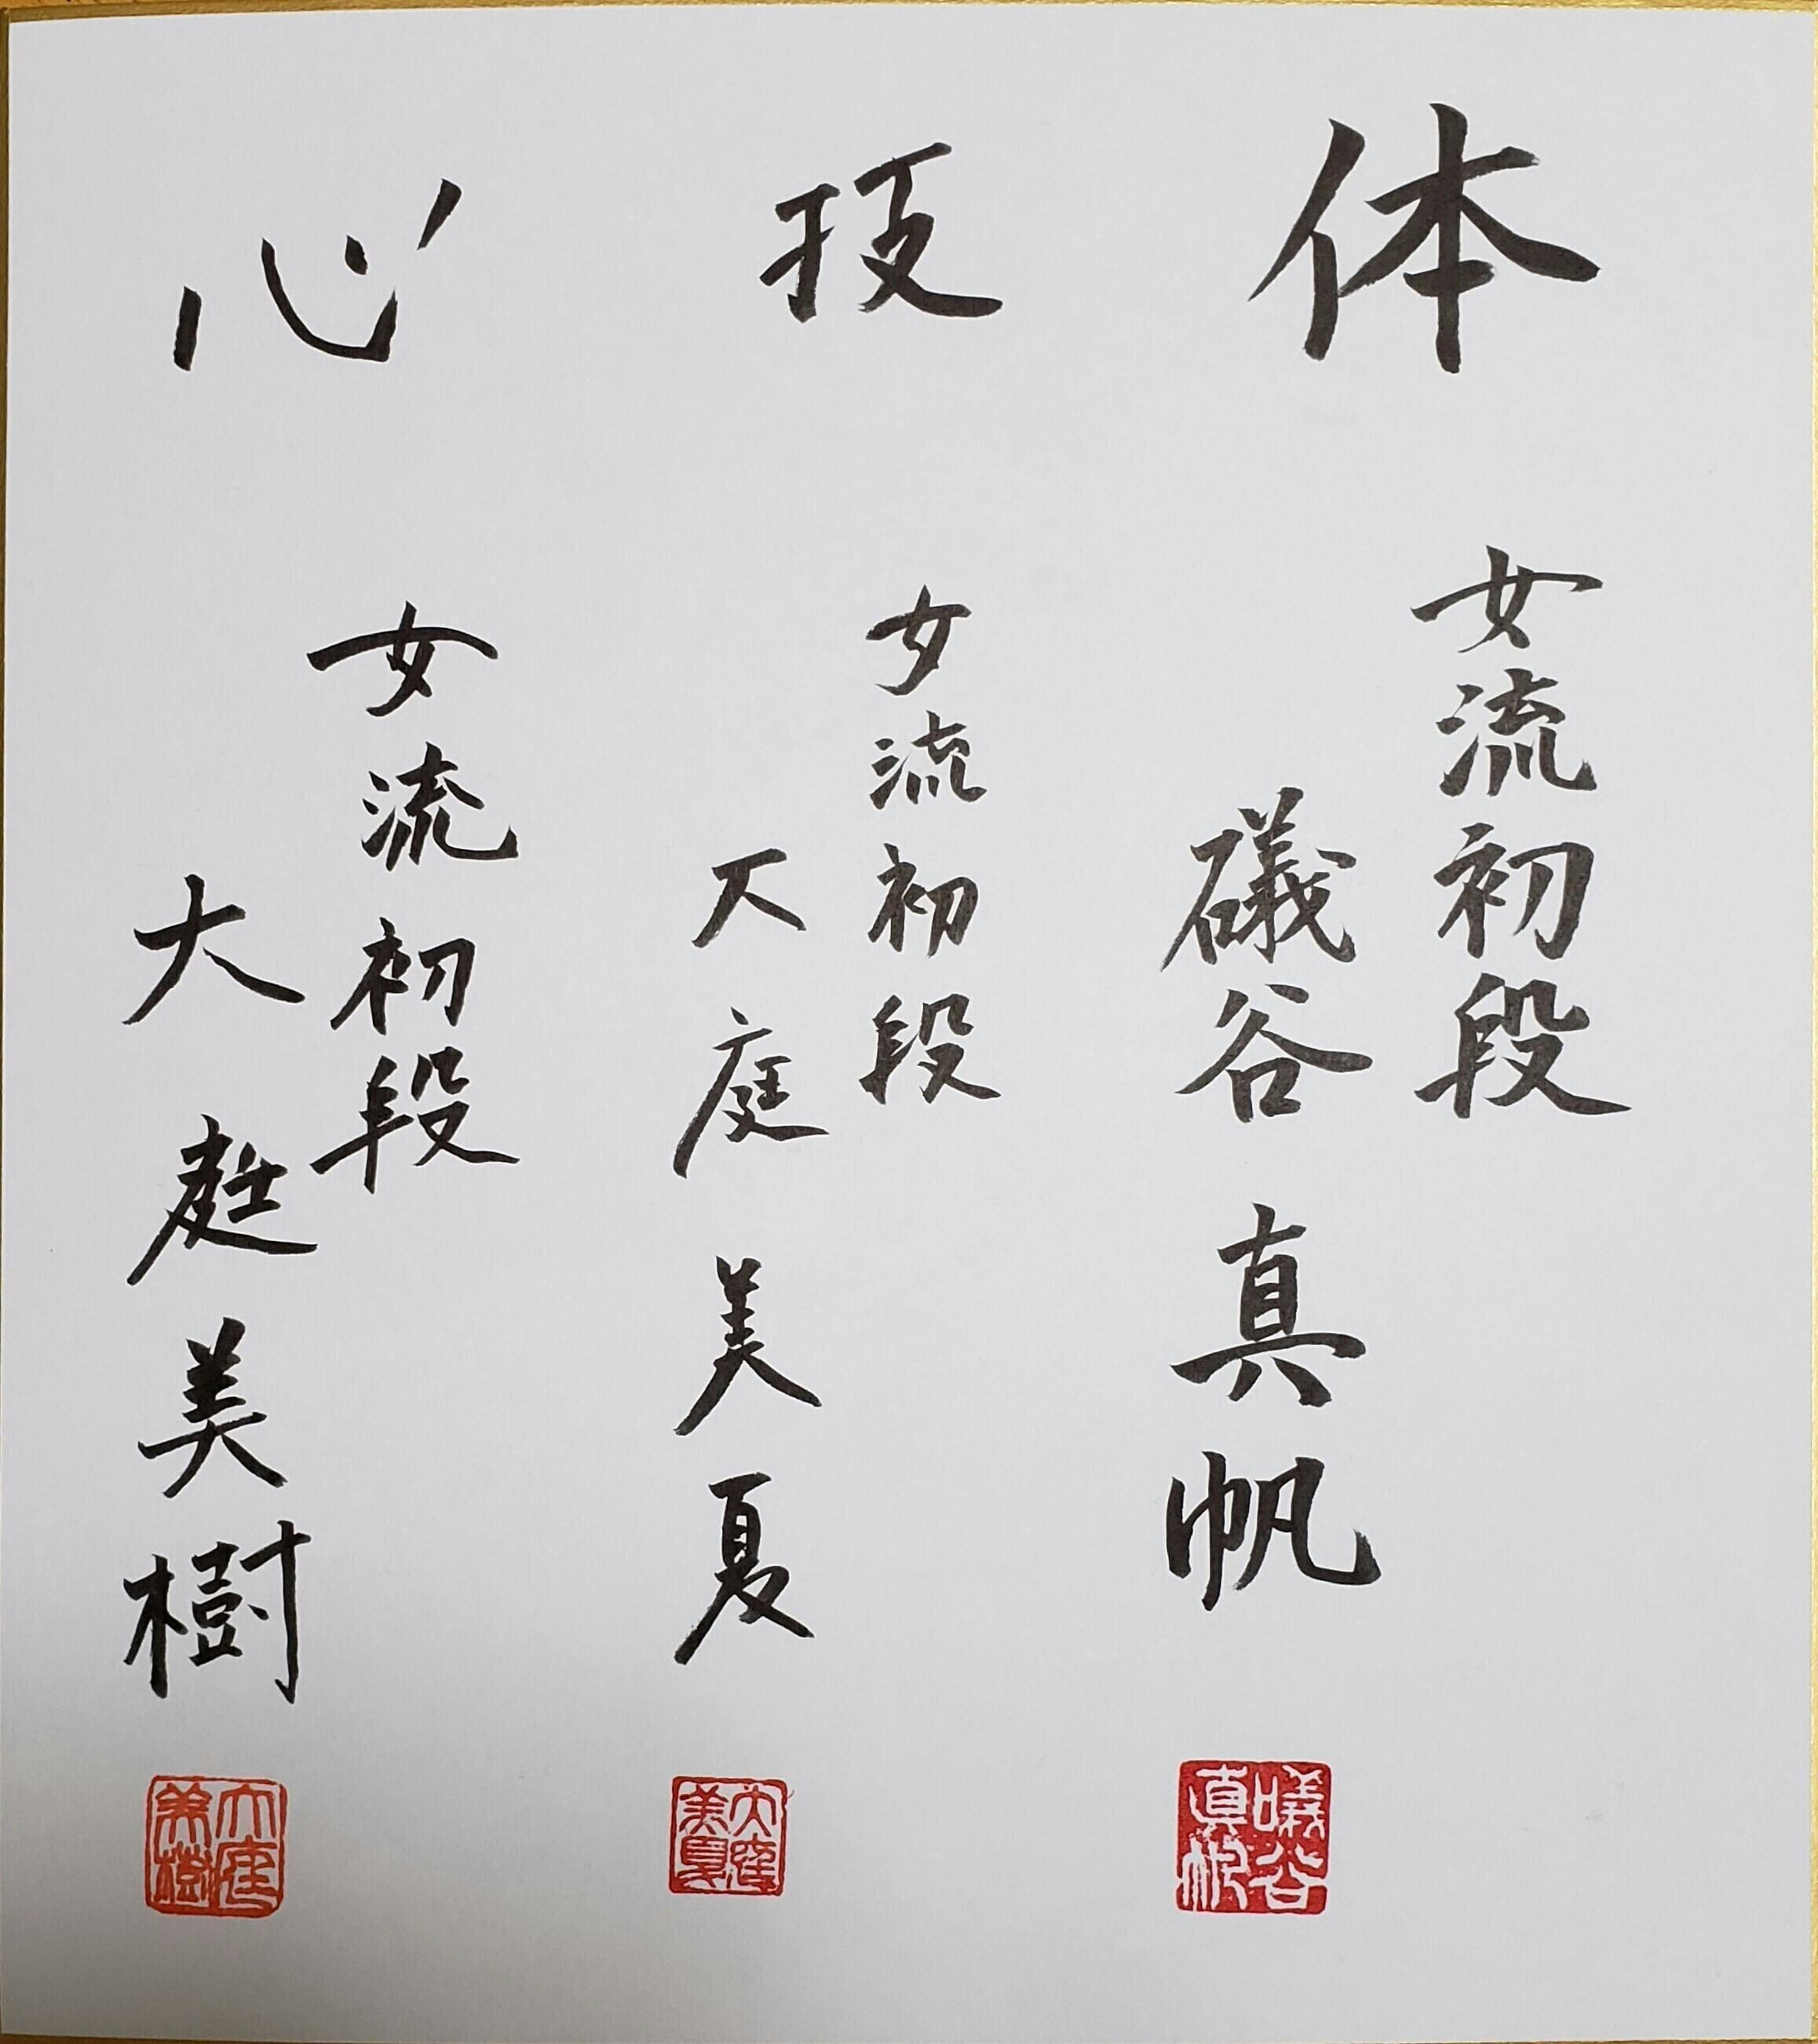 体
女流初段
礒谷真帆
技
女流初段
大庭美夏
心
女流初段
大庭美樹
礒谷真帆
大庭美夏
大庭美樹